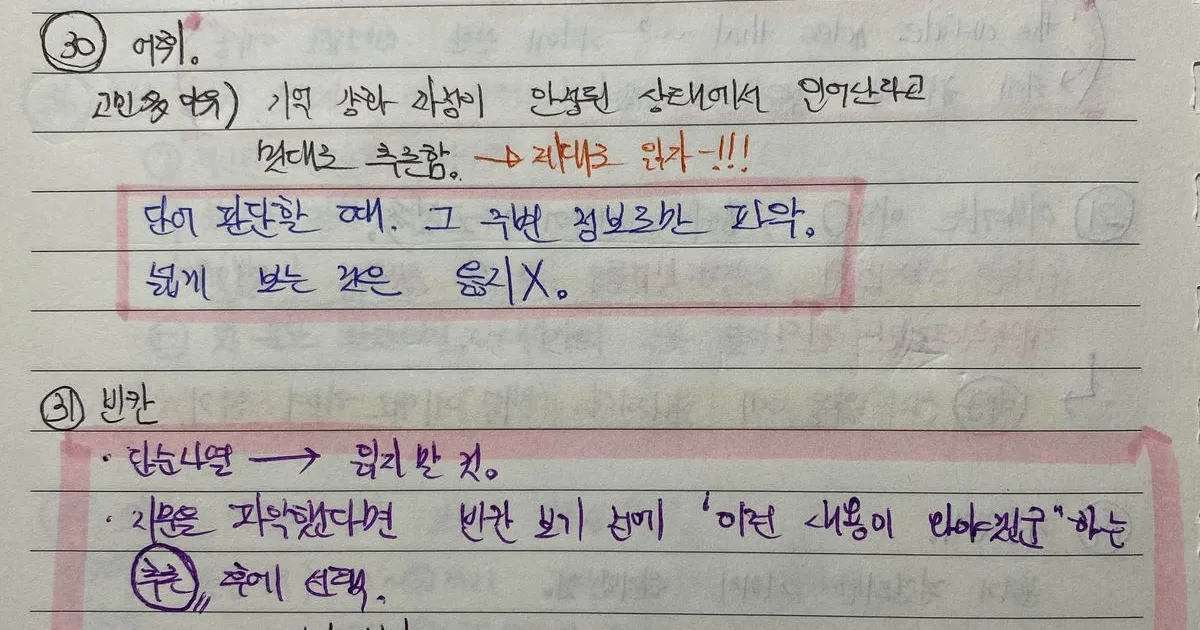 ㉚ 어휘.
고민한 이유) 기억 강화 과정이 안정된 상태에서 일어난다고
멋대로 추론함. → 제대로 읽자-!!!
단어 판단할 때. 그 주변 정보로만 파악.
넓게 보는 것은 옳지X.
㉛ 빈칸
· 단순나열 → 읽지 말 것.
· 지문을 파악했다면 빈칸 보기 전에 '이런 내용이 와야겠군"하는
추론 후에 선택.